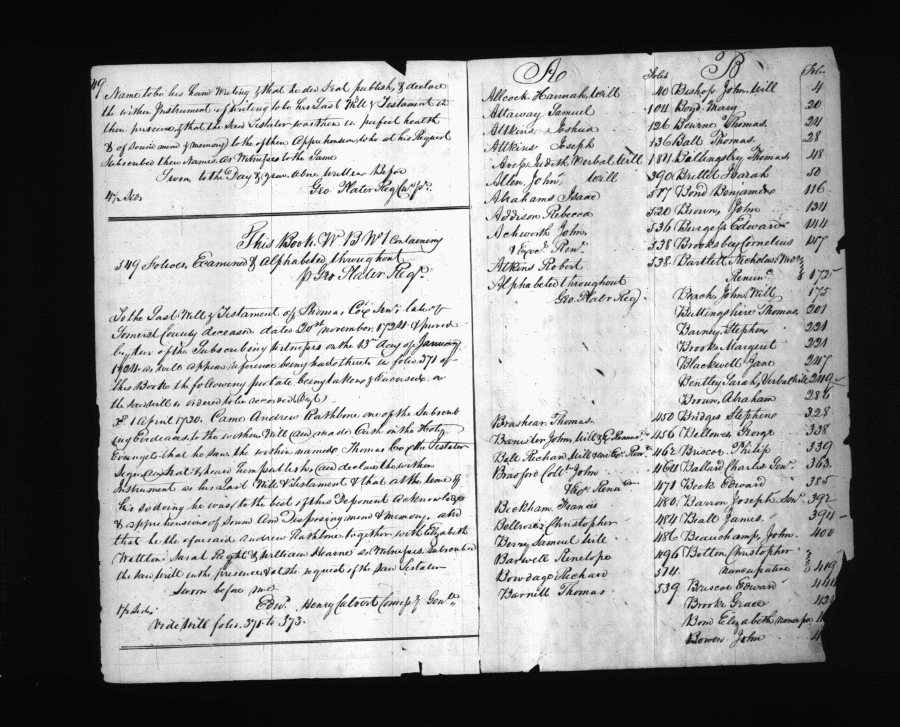 49
Name to be his Hand Writing & that he did Seal publish & declare
the within Instrument of Writing to be his Last Will & Testament in
their presence & that the said Testator was then in perfect health
& of Sound mind & memory to the of their Apprehension who at his Request
Subscribed their Names as Witnesses to the Same
Sworn to the Day & year above written Before
Geo Plater Reg
47 Sides
This Book W B No 1 Containing
549 Folioes, Examined & Alphabeted throughout
p Geo Plater Regr.
To the Last Will & Testament of Thomas Cox Senr. late of
Somerset County deceased dated 20th november 1724 & proved
by two of the Subscribing witnesses on the 13th day of January
1724 as will appear reference being had thereto in folio 371 of
this Book the following probate being taken & Endorsed on
the said Will is ordered to be recorded
1 April 1730. Came Andrew Rathbone one of the Subscrib
ing Evidences to the within Will and made Oath on the Holy
Evangels that he saw the within named Thomas Cox the Testator
Sign and Seal & heard him publish and declare the within
Instrument as his Last Will & Testament & that at the time of
his so doing he was to the best of this Deponent Acknowledge
& apprehensions of Sound And Disposing mind & memory, and
that he the aforesaid Andrew Rathbone together with Elizabeth
Wattson Sarah & William Hearne as Witnesses Subscribed
the said Will in the presence & at the request of the said Testator
Sworn before me
17 Sides
Edwd. Henry Calvert Comissy Genll.
Vide Will folio. 371 to 373.
A
Folio
Allcock Hannah Will 40
Attaway Samuel 104
Attkins Joshua 126
Attkins Joseph 136
Judith Verbal Will 184
Allen John Will 390
Abrahams Isaac 517
Addison Rebecca 520
Ackworth John, 536
& Execx. Renn. 538
Atkins Robert 538
Alphabeted throughout
Geo. Plater Reg
Brashear Thomas 450
Banister John, Will & Ex Renun. 456
Bell Richard Will 462
Bradford Collo. John 466
Renun 471
Beckham Francis 480
Christopher 484
Berry Samuel Will 486
Barwell Penelope 496
Bowdage Richard 514
Barnitt Thomas 539
B
Folio
Bishop John, Will 4
Boyd Mary 20
Bourne Thomas 24
Ball Thomas 28
Thomas 48
50
Bond Benjamin 116
Brown, John 134
Burgess Edward 144
Brooksbey Cornelius 147
Bartlett Nicholas
Renun 172
Beach John, Will 175
Thomas 201
Barney Stephen 221
Brooke Margaret 221
Blackwell Jane 247
Bentley Sarah, Verbal Will 249
Brown, Abraham 286
Bridges Stephen 328
Bellows George 338
Briscoe Philip 339
Ballard Charles Genn. 363
Beck Edward 385
Barron Joseph Senr. 392
Beall James 394
Beauchamp, John 400
Botton Christopher
nuncupative 419
Briscoe Edward
Brooke Grace
Bond Elizabeth
Bowen John